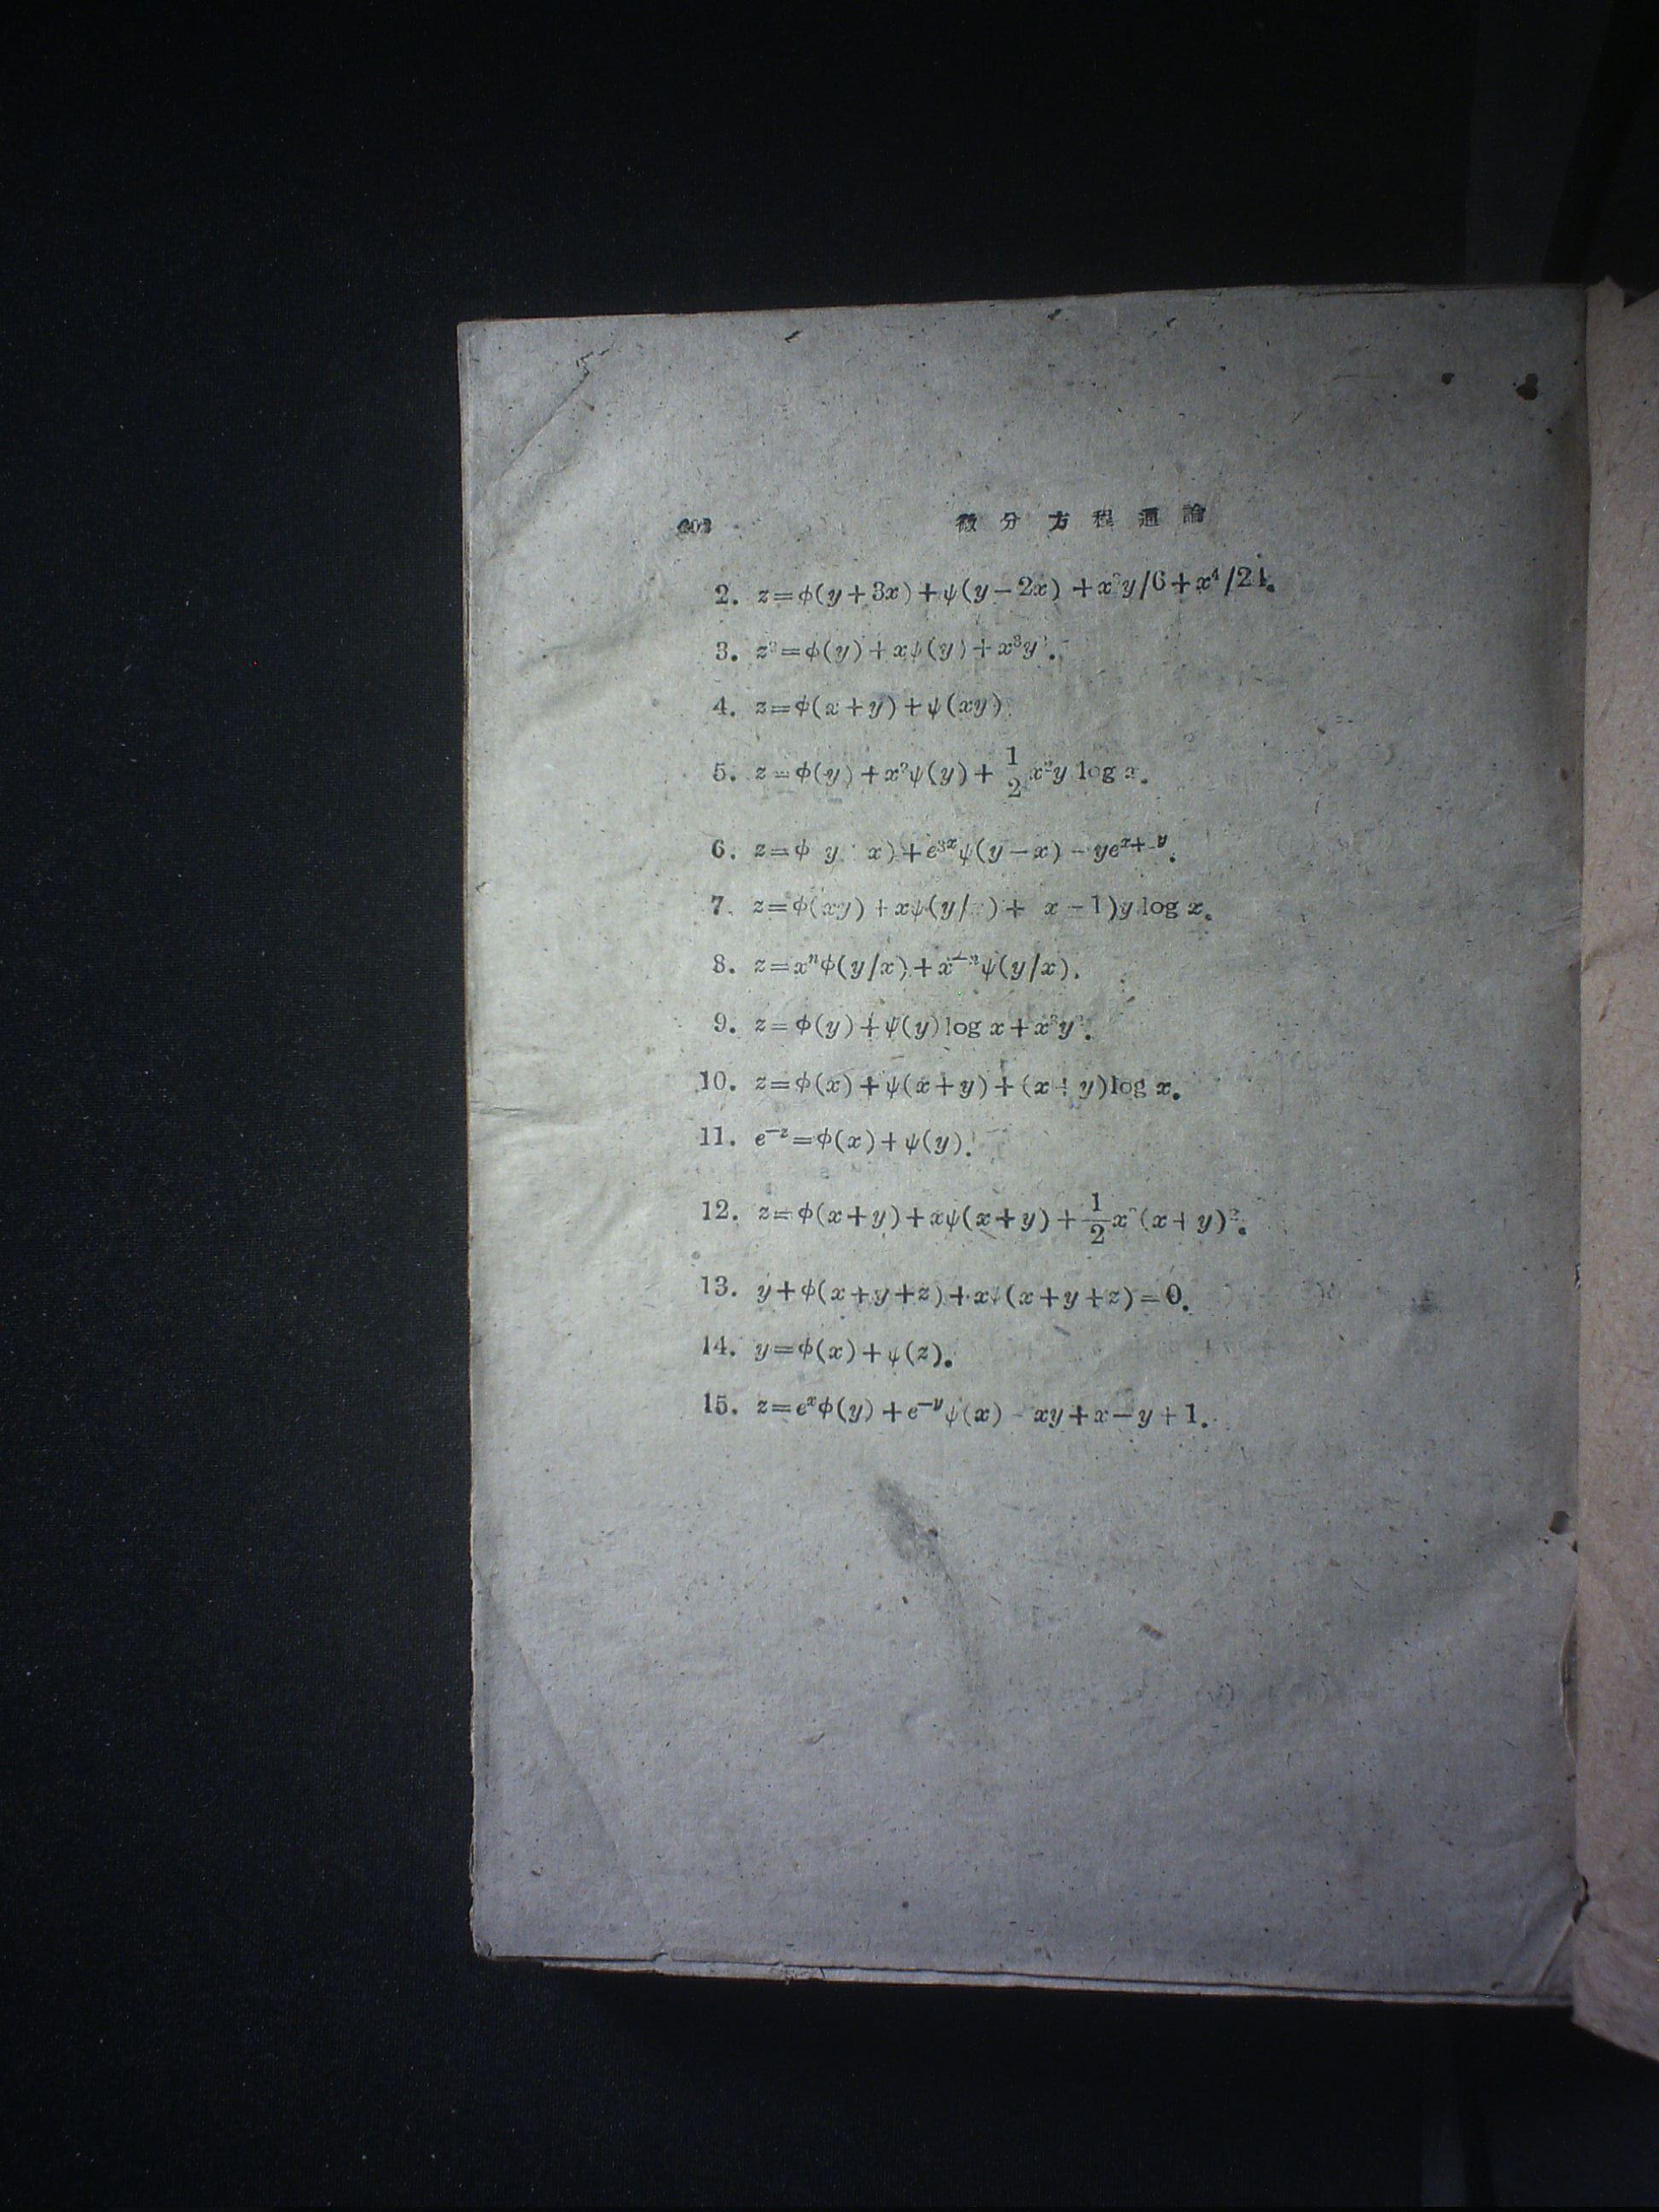 微分方程通論
2. z=ϕ(y+3x)+ψ(y−2x)+x³y/6+x⁴/24.
3. z²=ϕ(y)+xψ(y)+x³y
4. z=ϕ(x+y)+ψ(xy)
5. z=ϕ(y)+x²ψ(y)+1/2 x²y log x.
6. z=ϕ y x)+e³ˣψ(y−x)−yeˣ⁺
7. z=ϕ(xy)+xψ(y/ )+ x−1)y log x.
8. z=xⁿϕ(y/x)+x⁻ⁿψ(y/x).
9. z=ϕ(y)+ψ(y)log x+x²y .
10. z=ϕ(x)+ψ(x+y)+(x+y)log x.
11. e⁻ᶻ=ϕ(x)+ψ(y).
12. z=ϕ(x+y)+xψ(x+y)+1/2 x²(x+y)².
13. y+ϕ(x+y+z)+xψ(x+y+z)=0.
14. y=ϕ(x)+ψ(z).
15. z=eˣϕ(y)+e⁻ʸψ(x)−xy+x−y+1.